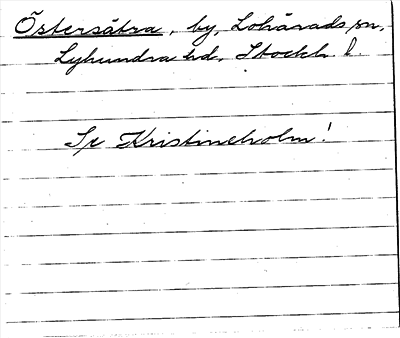 Östersätra, by, Lohärads sn,
Lyhundra hd, Stockh. l.
Se Kristineholm!